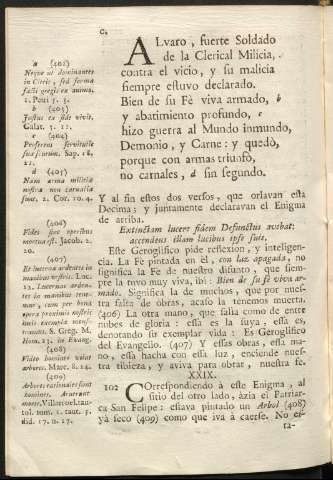 C.
ALvaro, fuerte Soldado
de la Clerical Milicia,
contra el vicio, y su malicia
siempre estuvo declarado.
Bien de su Fè viva armado, b
y abatimiento profundo, c
hizo guerra al Mundo inmundo,
Demonio, y Carne: y quedò,
porque con armas triunfò,
no carnales, d sin segundo.
Y al fin estos dos versos, que orlavan esta
Decima; y juntamente declaravan el Enigma
de arriba.
Extinctam lucere fidem Defunctus ovabat:
accendens illam lucibus ipse suis.
Este Geroglifico pide reflexion, y inteligen-
cia. La Fè pintada en èl, con luz apagada, no
significa la Fè de nuestro difunto, que siem-
pre la tuvo muy viva, ibi: Bien de su fè viva ar-
mado. Significa la de muchos, que por nues-
tra falta de obras, acaso la tenemos muerta.
(406) La otra mano, que salia como de entre
nubes de gloria: essa es la suya: essa es,
denotando su exemplar vida: Es Geroglifico
del Evangelio. (407) Y essas obras, essa ma-
no, essa hacha con essa luz, enciende nues-
tra tibieza, y aviva para obrar, nuestra fe.
XXIX.
102 COrrespondiendo à este Enigma, al
sitio del otro lado, àzia el Patriar-
ca San Felipe: estava pintado un Arbol (408)
yà seco (409) como que iva à caerse. No es-
ta-
a (402)
Neque ut dominantes
in Cleris, sed forma
facti gregis ex animo.
1. Petri 5. 3.
b (403)
Justus ex fide vivit.
Galat. 3. 11.
c (404)
servitute
Sap. 18.
d (405)
Nam arma militiæ
nostræ non carnalia
sunt. 2. Cor. 10. 4.
(406)
Fides sine operibus
mortua est. Jacob. 2.
20.
(407)
Et lucernæ ardentes in
manibus vestris. Luc.
12. Lucernas arden-
tes in manibus tene-
mus, cum per bona
opera proximis nostris
lucis exempla mons-
tramus. S. Greg. M.
Hom. 13. in Evang.
(408)
Video homines velut
arbores. Marc. 8. 24.
(409)
Arbores rationales sunt
homines.
Villarroel, tau-
tol. tom. 1. taut. 5.
did. 17. n. 27.